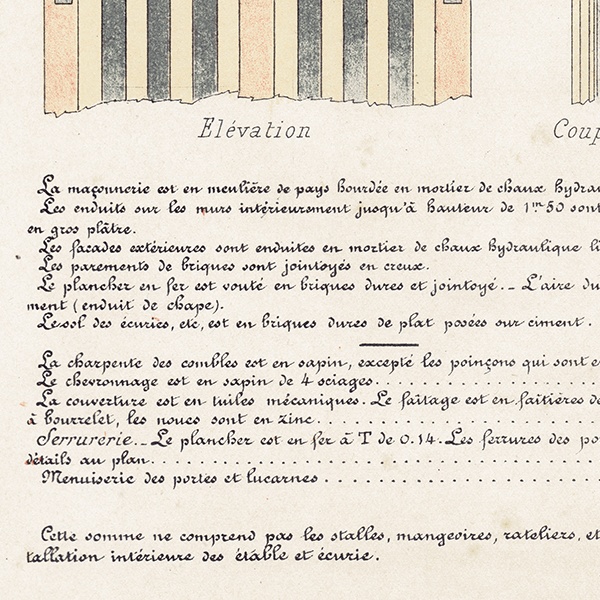 Elévation
Coup
La maçonnerie est en meulière de pays hourdée en mortier de chaux hydrau
Les enduits sur les murs intérieurement jusqu'à hauteur de 1m50 sont
en gros plâtre.
Les façades extérieures sont enduites en mortier de chaux hydraulique li
Les parements de briques sont jointoyés en creux.
Le plancher en fer est vouté en briques dures et jointoyé._ L'aire du
ment (enduit de chape).
Le sol des écuries, etc, est en briques dures de plat posées sur ciment.
La charpente des combles est en sapin, excepté les poinçons qui sont e
Le chevronnage est en sapin de 4 sciages.
La couverture est en tuiles mécaniques. Le faîtage est en faîtières de
à bourrelet, les noues sont en zinc.
Serrurerie._ Le plancher est en fer à T de 0.14. Les ferrures des po
détails au plan.
Menuiserie des portes et lucarnes
Cette somme ne comprend pas les stalles, mangeoires, rateliers, et
tallation intérieure des étable et écurie.